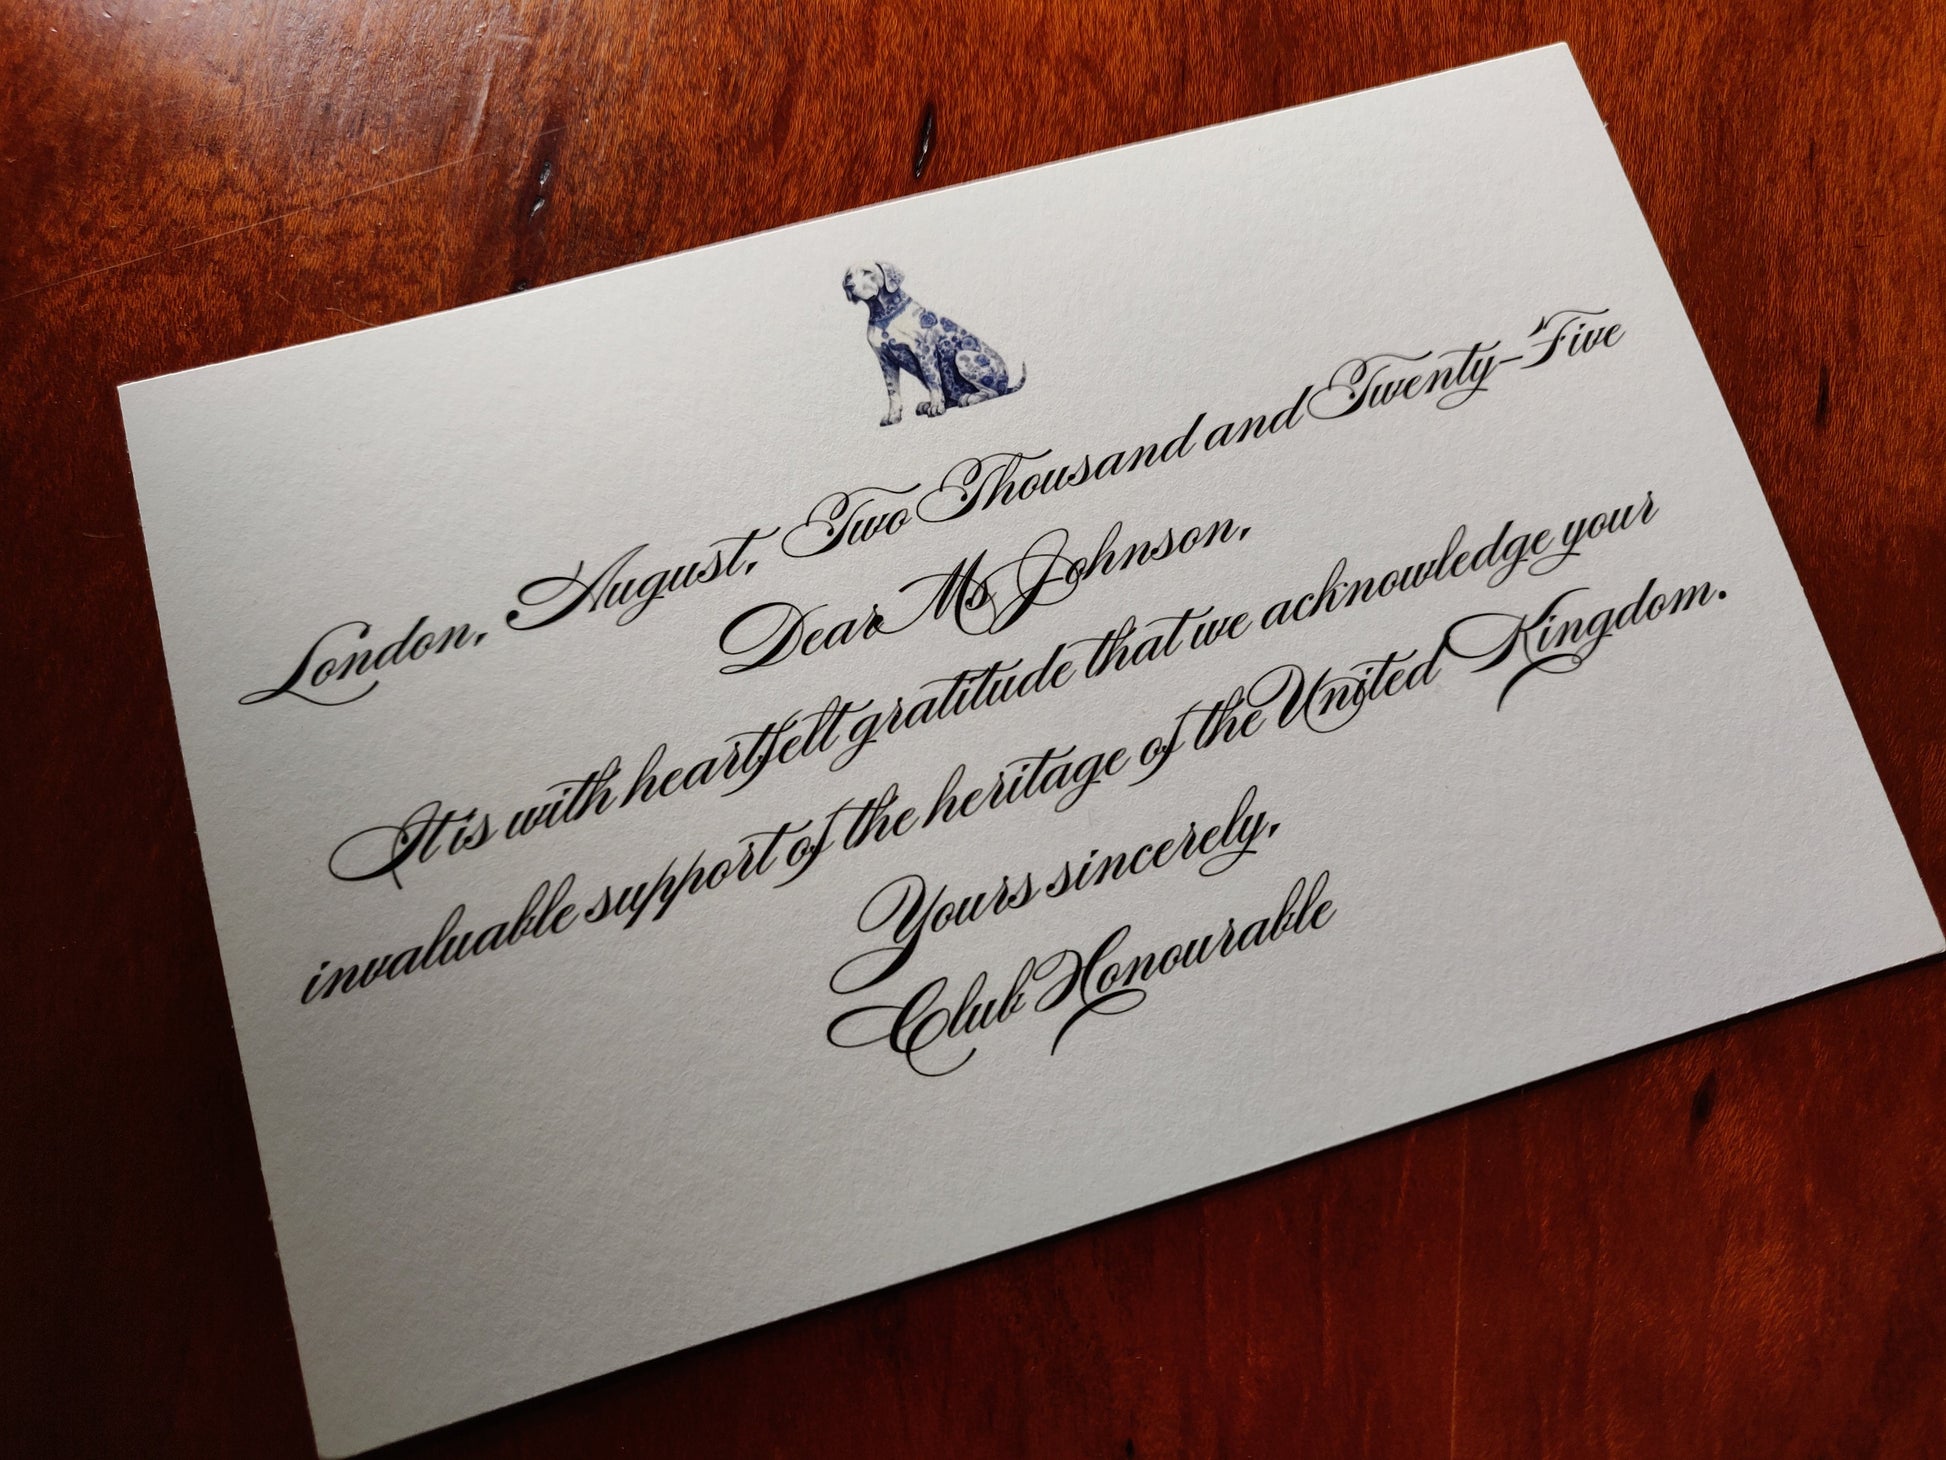 London, August, Two Thousand and Twenty-Five
Dear Ms Johnson,
It is with heartfelt gratitude that we acknowledge your
invaluable support of the heritage of the United Kingdom.
Yours sincerely,
Club Honourable